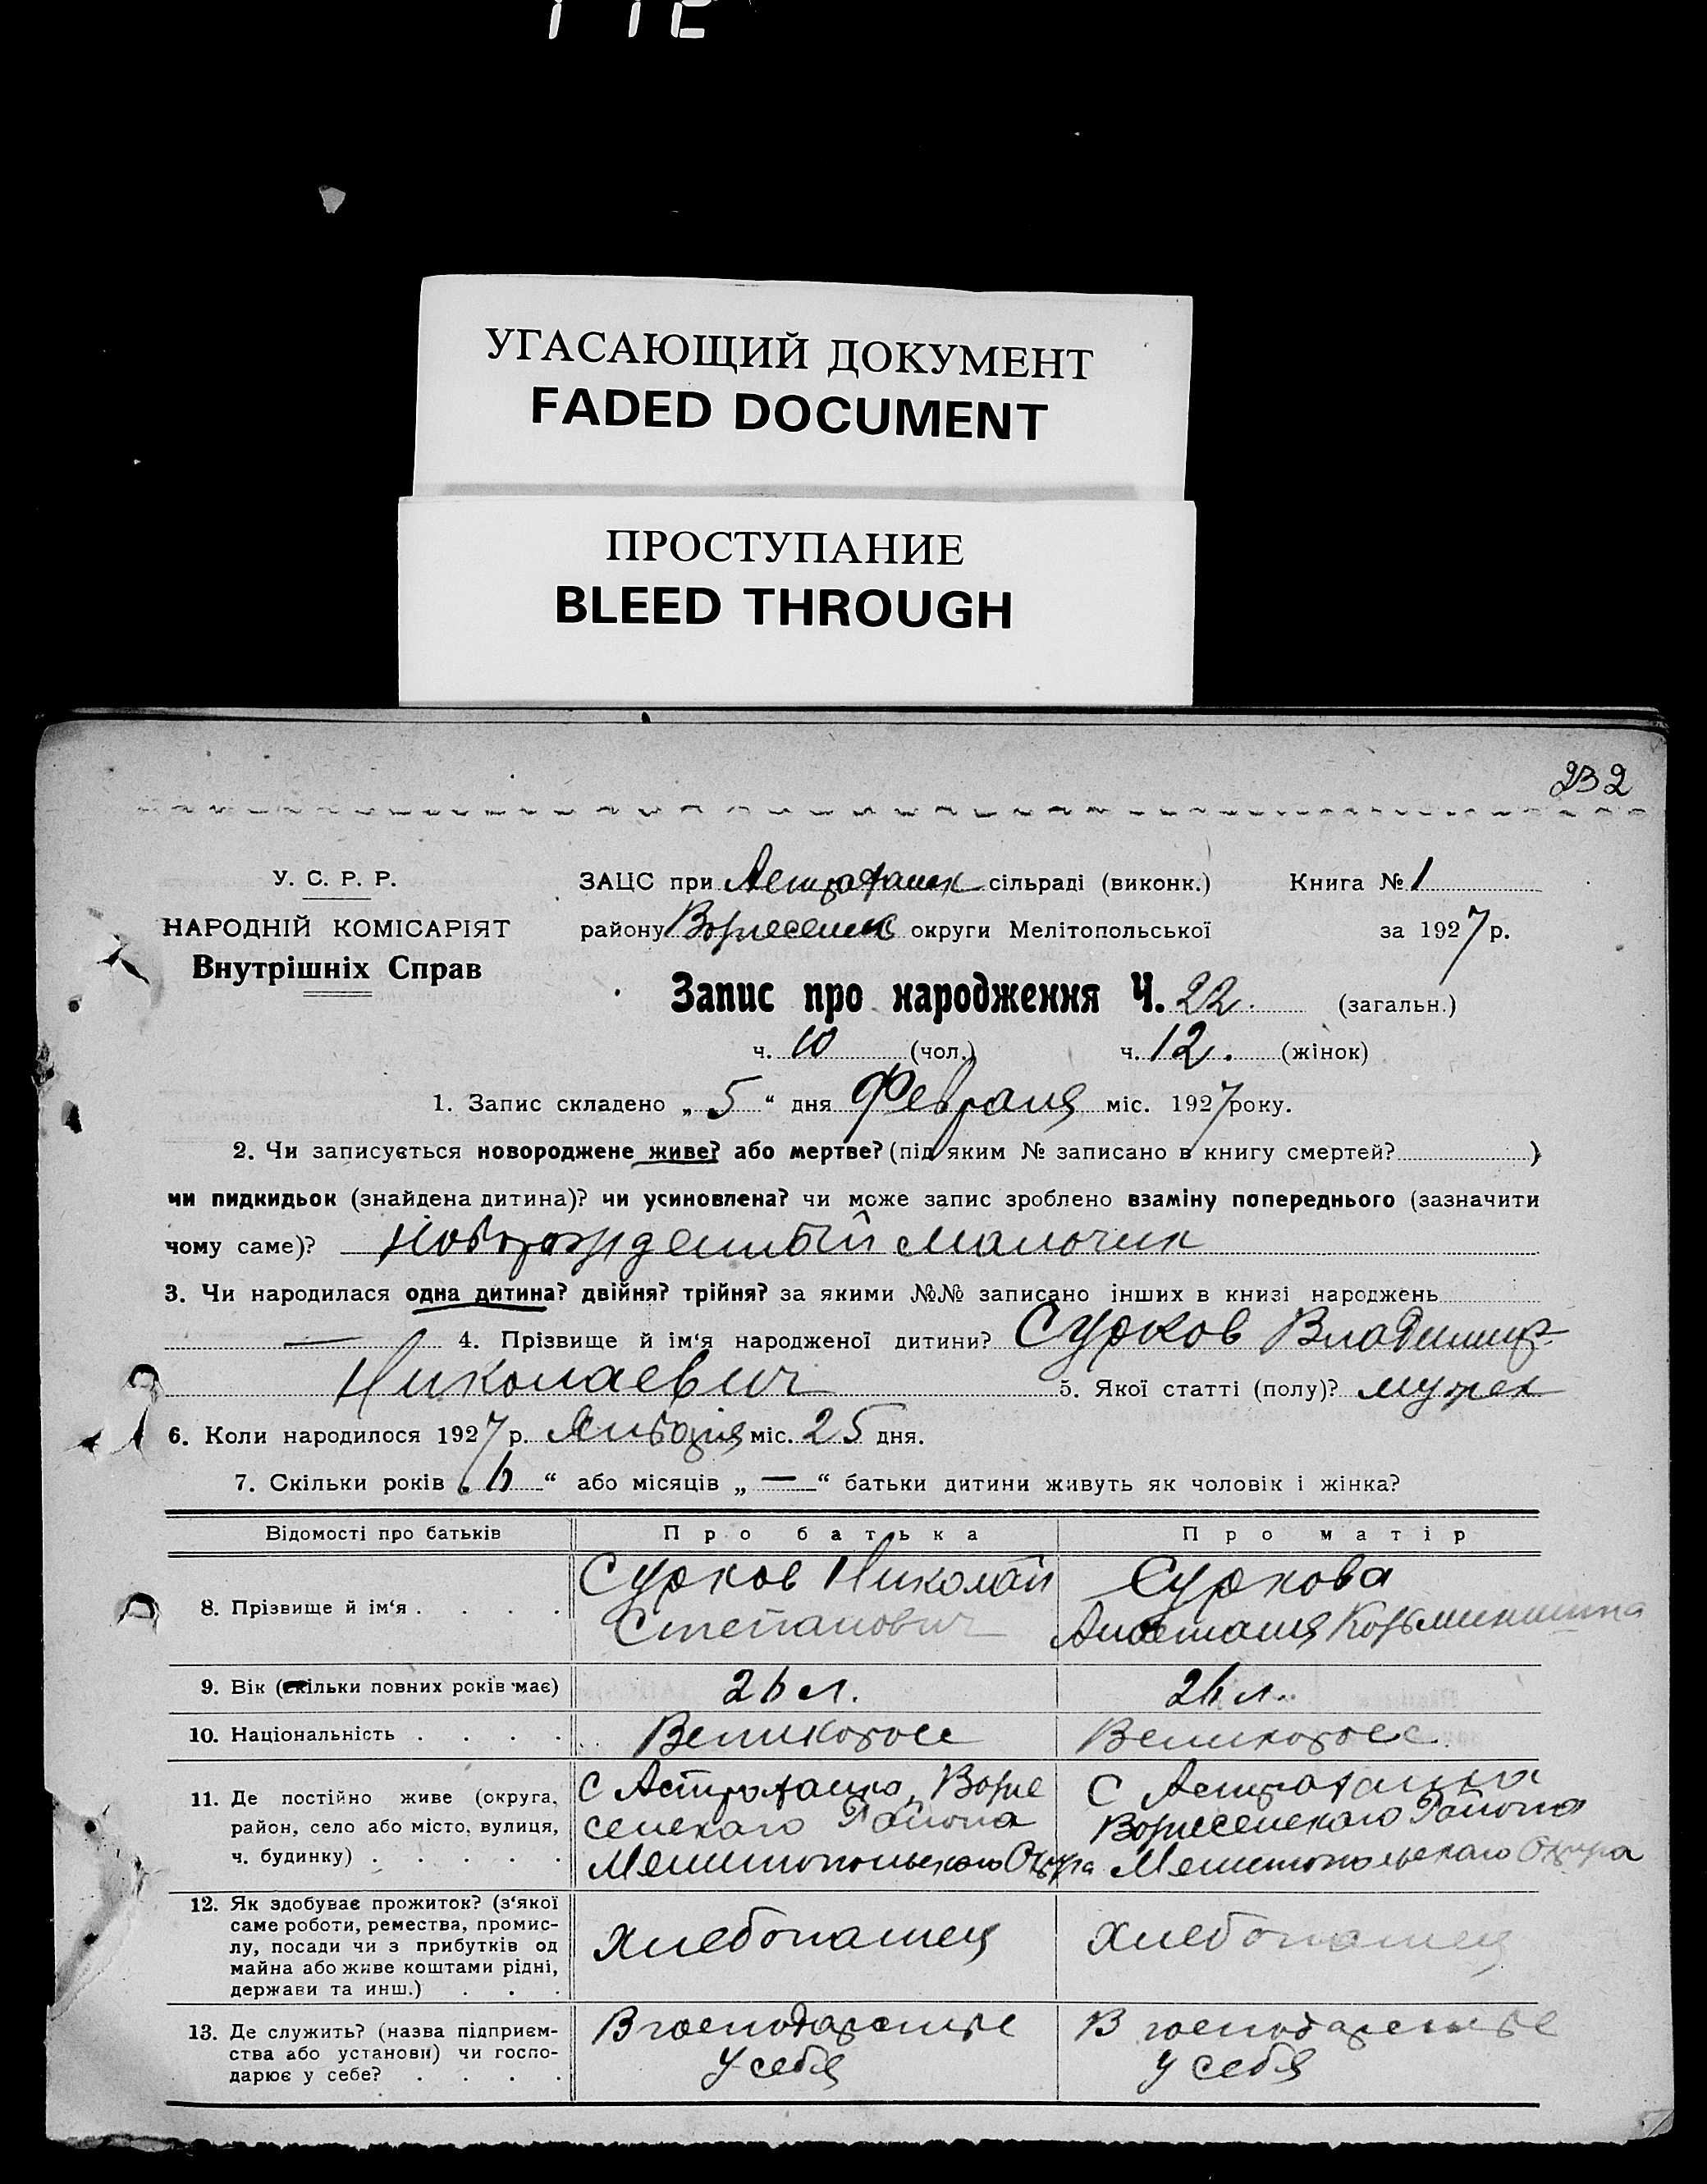 УГАСАЮЩИЙ ДОКУМЕНТ
FADED DOCUMENT
ПРОСТУПАНИЕ
BLEED THROUGH
232
У. С. Р. Р.
НАРОДНІЙ КОМІСАРІЯТ
Внутрішніх Справ
ЗАЦС при Астрахански сільраді (виконк.) Книга № 1
району Вознесенск округи Мелітопольської за 1927 р.
Запис про народження Ч. 22. (загальн.)
ч. 10 (чол.) ч. 12. (жінок)
1. Запис складено „ 5 “ дня Февраля міс. 1927 року.
2. Чи записується новороджене живе? або мертве? (під яким № записано в книгу смертей? )
чи пидкидьок (знайдена дитина)? чи усиновлена? чи може запис зроблено взаміну попереднього (зазначити
чому саме)? Новорожденный малочик
3. Чи народилася одна дитина? двійня? трійня? за якими №№ записано інших в книзі народжень
— 4. Прізвище й ім‘я народженої дитини? Сурков Владимир
Николаевич 5. Якої статті (полу)? мужск
6. Коли народилося 1927 р. Января міс. 25 дня.
7. Скільки років „ 6 “ або місяців „ — “ батьки дитини живуть як чоловік і жінка?
Відомості про батьків Про батька Про матір
8. Прізвище й ім‘я . . . . Сурков Николай Суркова
Степанович Анастасия
9. Вік (скільки повних років має) 26 л. 26 л.
10. Національність . . . . Великоросс Великоросс
11. Де постійно живе (округа, С Астраханка, Возне С Астраханка
район, село або місто, вулиця, сенскаго Района Вознесенскаго Района
ч. будинку) . . . . . Мелитопольскаго Округа Мелитопольскаго Округа
12. Як здобуває прожиток? (з‘якої
саме роботи, ремества, промис-
лу, посади чи з прибутків од Хлебопашец Хлебопашец
майна або живе коштами рідні,
держави та инш.) . . .
13. Де служить? (назва підприєм- В господарстве В господарстве
ства або установи) чи госпо- у себя у себя
дарює у себе? . . . .